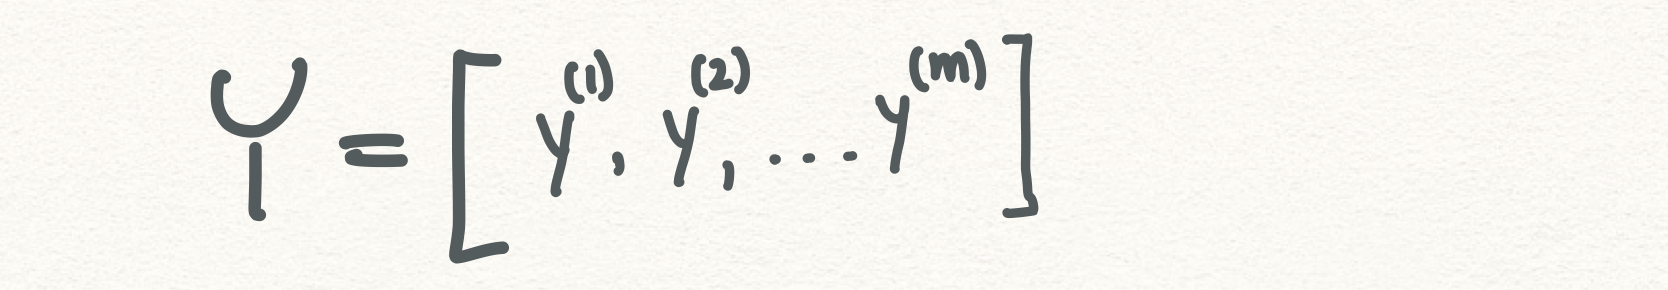 Y = [ y^(1), y^(2), ... y^(m) ]